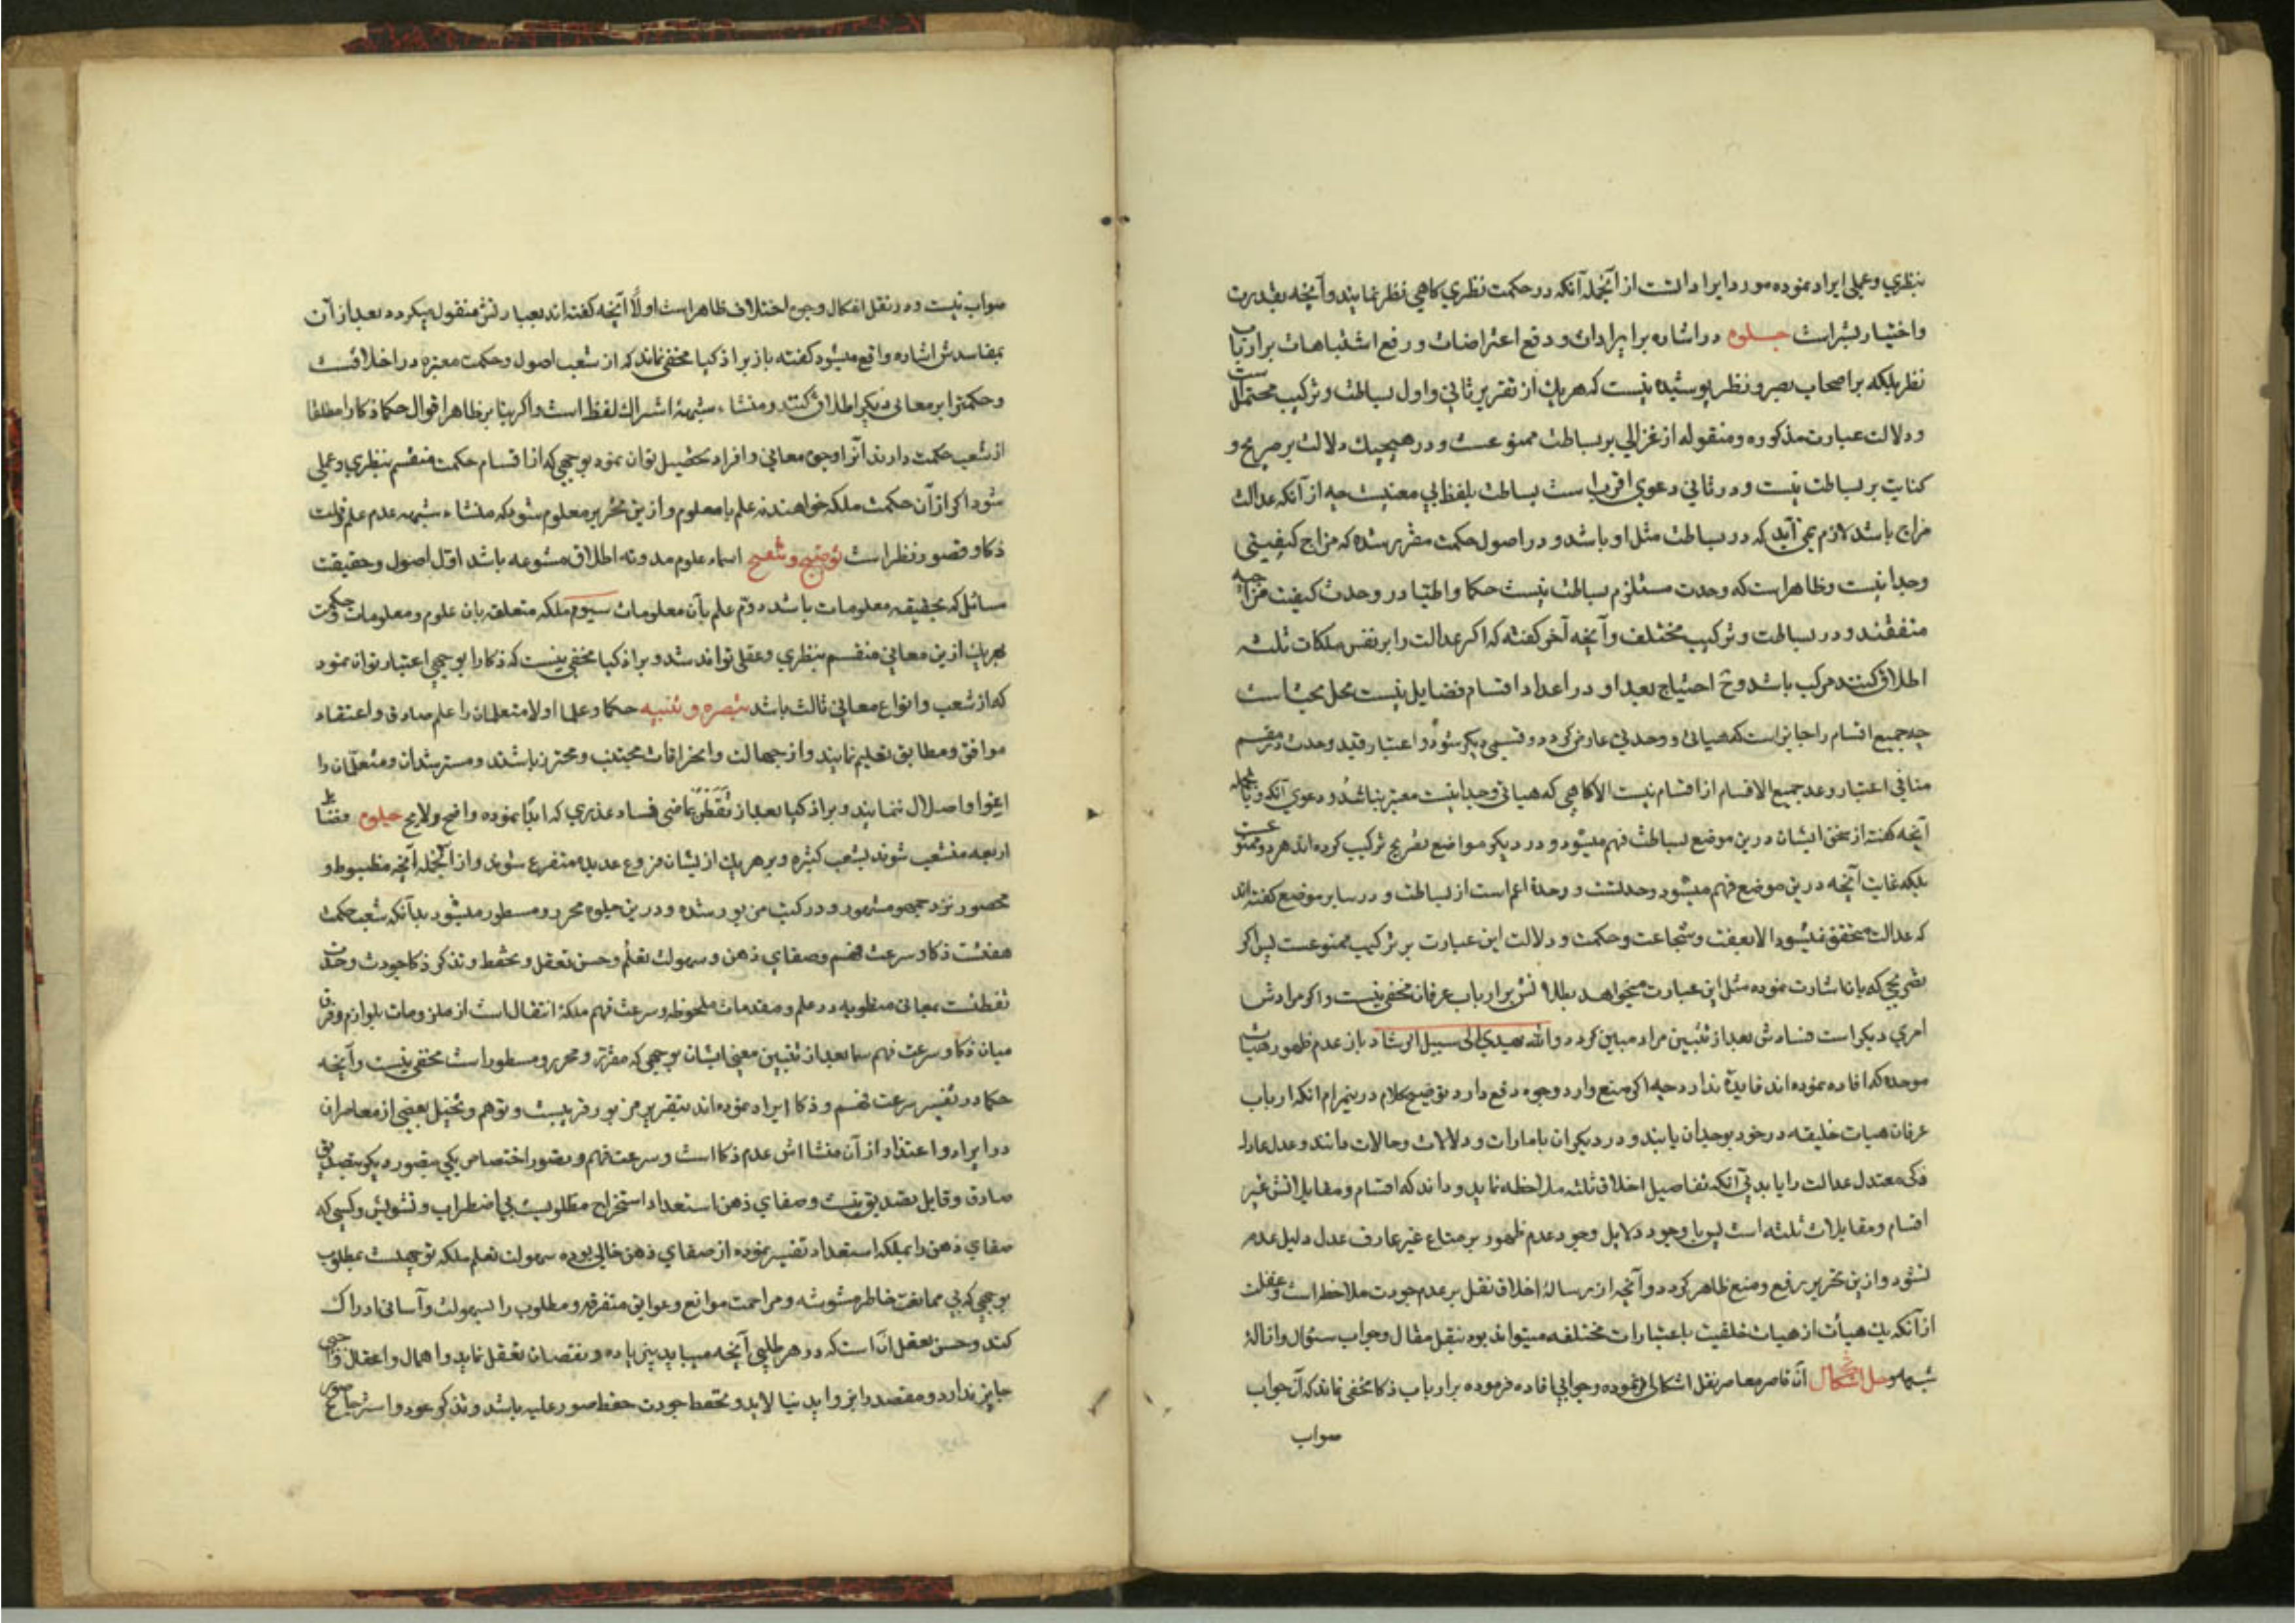 بنظری وعملی ایراد نموده مورد ایراد است از آنجمله آنکه در حکمت نظری کاهی نظر نمایند وآنچه بقدرت
واختیار بشراست جلوه در اشاره بر ایرادات و دفع اعتراضات و رفع اشتباهات بر ارباب
نظر بلکه بر اصحاب بصر و نظر پوشیده نیست که هریک از تقریر ثانی واول بساطت وترکیب محتمل است
و دلالت عبارت مذکوره ومنقوله از غزالی بر بساطت ممنوعست و در هیچیک دلالت بر صریح و
کنایت بر بساطت نیست و در ثانی دعوی اقرب است بساطت بلفظ بی معنیست چه از آنکه عدالت
مزاج باشد لازم نمی آید که در بساطت مثل او باشد و در اصول حکمت مقرر شده که مزاج کیفیتی
وحدانیست وظاهر است که وحدت مستلزم بساطت نیست حکما واطبا در وحدت کیفیت مزاجیه
متفقند و در بساطت وترکیب مختلف وآنچه آخر کفته که اکر عدالت را بر نفس ملکات ثلثه
اطلاق کنند مرکب باشد وح احتیاج بعد او در اعداد اقسام فضایل نیست محل بحث است
چه جمیع اقسام را جایز است که هیاتی و وحدتی عارض کردد و قسمی دیکر شود و اعتبار قید وحدت در مقسم
منافی اعتبار وعد جمیع الاقسام از اقسام نیست الا کاهی که هیاتی وحدانیست معتبر نباشد و دعوی آنکه وبالجمله
آنچه کفته از سخن ایشان درین موضع بساطت فهم میشود و در دیکر مواضع تصریح ترکیب کرده اند هر دو ممنوعست
بلکه غایت آنچه درین موضع فهم میشود وحدتست و وحدة اعم است از بساطت و در سایر موضع کفته اند
که عدالت متحقق نمیشود الا بعفت وشجاعت وحکمت و دلالت این عبارت بر ترکیب ممنوعست پس اکر
تصریحی که بانا شارت نموده مثل این عبارت میخواهد بطلانش بر ارباب عرفان مخفی نیست واکر مرادش
امری دیکر است فسادش بعد از تبیین مراد مبین کردد والله یهدی الی سبیل الرشاد باز عدم ظهور هیات
موحده که افاده نموده اند فایدۀ ندارد چه اکر منع وارد وجوه دفع دارد توضیح کلام درینمرام انکه ارباب
عرفان هیات خلیقه در خود بوجدان یابند و در دیکران بامارات و دلالات وحالات دانند وعدل عادل
ذکی معتدل عدالت را یابد بی آنکه تفاصیل اخلاق ثلثه ملاحظه نماید و داند که اقسام ومقابلاتش غیر
اقسام ومقابلات ثلثه است پس با وجود دلایل وجود عدم ظهور بر متاع غیر عارف عدل دلیل عدم
نشود و ازین تحریر رفع ومنع ظاهر کردد و آنچه از رسالۀ اخلاق نقل بر عدم جودت ملاحظه است وغفلت
از آنکه یک هیأت از هیات خلقیت باعتبارات مختلفه میتواند بود بنقل مقال وجواب سئوال وازالۀ
شبهه وحل اشکال آن قاصر معاصر نقل اشکالی فرموده وجوابی افاده فرموده بر ارباب ذکا مخفی نماند که آن جواب
صواب
صواب نیست و در نقل اشکال وجوه اختلاف ظاهر است اولًا آنچه کفته اند بعبارتش منقول میکردد بعد از آن
بمفاسدش اشاره واقع میشود کفته باز بر اذکیا مخفی نماند که از شعب اصول وحکمت معتبره در اخلاقست
وحکمترا بر معانی دیکر اطلاق کنند ومنشاء شبهۀ اشتراک لفظ است واکر بنا بر ظاهر اقوال حکما ذکا را مطلقا
از شعب حکمت دارند آنرا وجوه معانی وافراد تحصیل توان نمود بوجهی که از اقسام حکمت منقسم بنظری وعملی
شود اکر از آن حکمت ملکه خواهند نه علم یا معلوم وازین تحریر معلوم شود که منشاء شبهه عدم علم قلت
ذکا وقصور نظر است توضیح وتنقیح اسماء علوم مدونه اطلاق متنوعه باشد اول اصول وحقیقت
مسائل که بحقیقه معلومات باشد دوم علم بآن معلومات سیوم ملکه متعلقه بان علوم ومعلومات وحکمت
بهریک ازین معانی منقسم بنظری وعقلی تواند شد و بر اذکیا مخفی نیست که ذکا را بوجهی اعتبار توان نمود
که از شعب وانواع معانی ثالث باشد تبصره وتنبیه حکما وعلما اولا متعلمان را علم صادق واعتقاد
موافق ومطابق تعلیم نمایند واز جهالت وانحرافات مجتنب ومحترز باشند ومسترشدان ومتعلمان را
اغوا واضلال ننمایند وبر اذکیا بعد از تفطن بماضی فساد عذری که ابدا نموده واضح ولایح جلوه فضایل
اربعه منشعب شوند بشعب کثیره وبر هریک از ایشان فروع عدیده متفرع شوند واز آنجمله آنچه مضبوط و
محصور نزد جمهور مشهور و در کتب مزبور شده و درین جلوه محرر و مسطور میشود بدآنکه شعب حکمت
هفتست ذکا و سرعت فهم وصفای ذهن وسهولت تعلّم وحسن تعقل وتحفظ وتذکر ذکا جودت وحدت
تفطنست بمعانی منطویه در علم و مقدمات ملحوظه وسرعت فهم ملکۀ انتقال است از ملزومات بلوازم وفرق
میان ذکا و سرعت فهم سیما بعد از تبیین معنی ایشان بوجهی که مقرر ومحرر و مسطور است مخفی نیست وآنچه
حکما در تفسیر سرعت فهم و ذکا ایراد نموده اند بتقریر مزبور قریبست وتوهم وتخیل بعضی از معاصران
در ایراد واعتذار از آن منشا اش عدم ذکا است وسرعت فهم وتصور اختصاص یکی بتصور ودیکر بتصدیق
صادق وقابل تصدیق نیست وصفای ذهن استعداد استخراج مطلوبست بی اضطراب وتشویش وکسی که
صفای ذهن را بملکه استعداد تفسیر نموده از صفای ذهن خالی بوده سهولت تعلم ملکه توجهست بمطلوب
بوجهی که بی ممانعت خاطر مشوشه ومزاحمت موانع وعوایق متفرقه ومطلوب را بسهولت وآسانی ادراک
کند وحسن تعقل آن است که در هر طلبی آنچه میباید بی زیاده ونقصان تعقل نماید واهمال واغفال
جایز ندارد و مقصد را بزواید نیالاید وتحفظ جودت حفظ صور علمیه باشد وتذکر عود واسترجاع صور